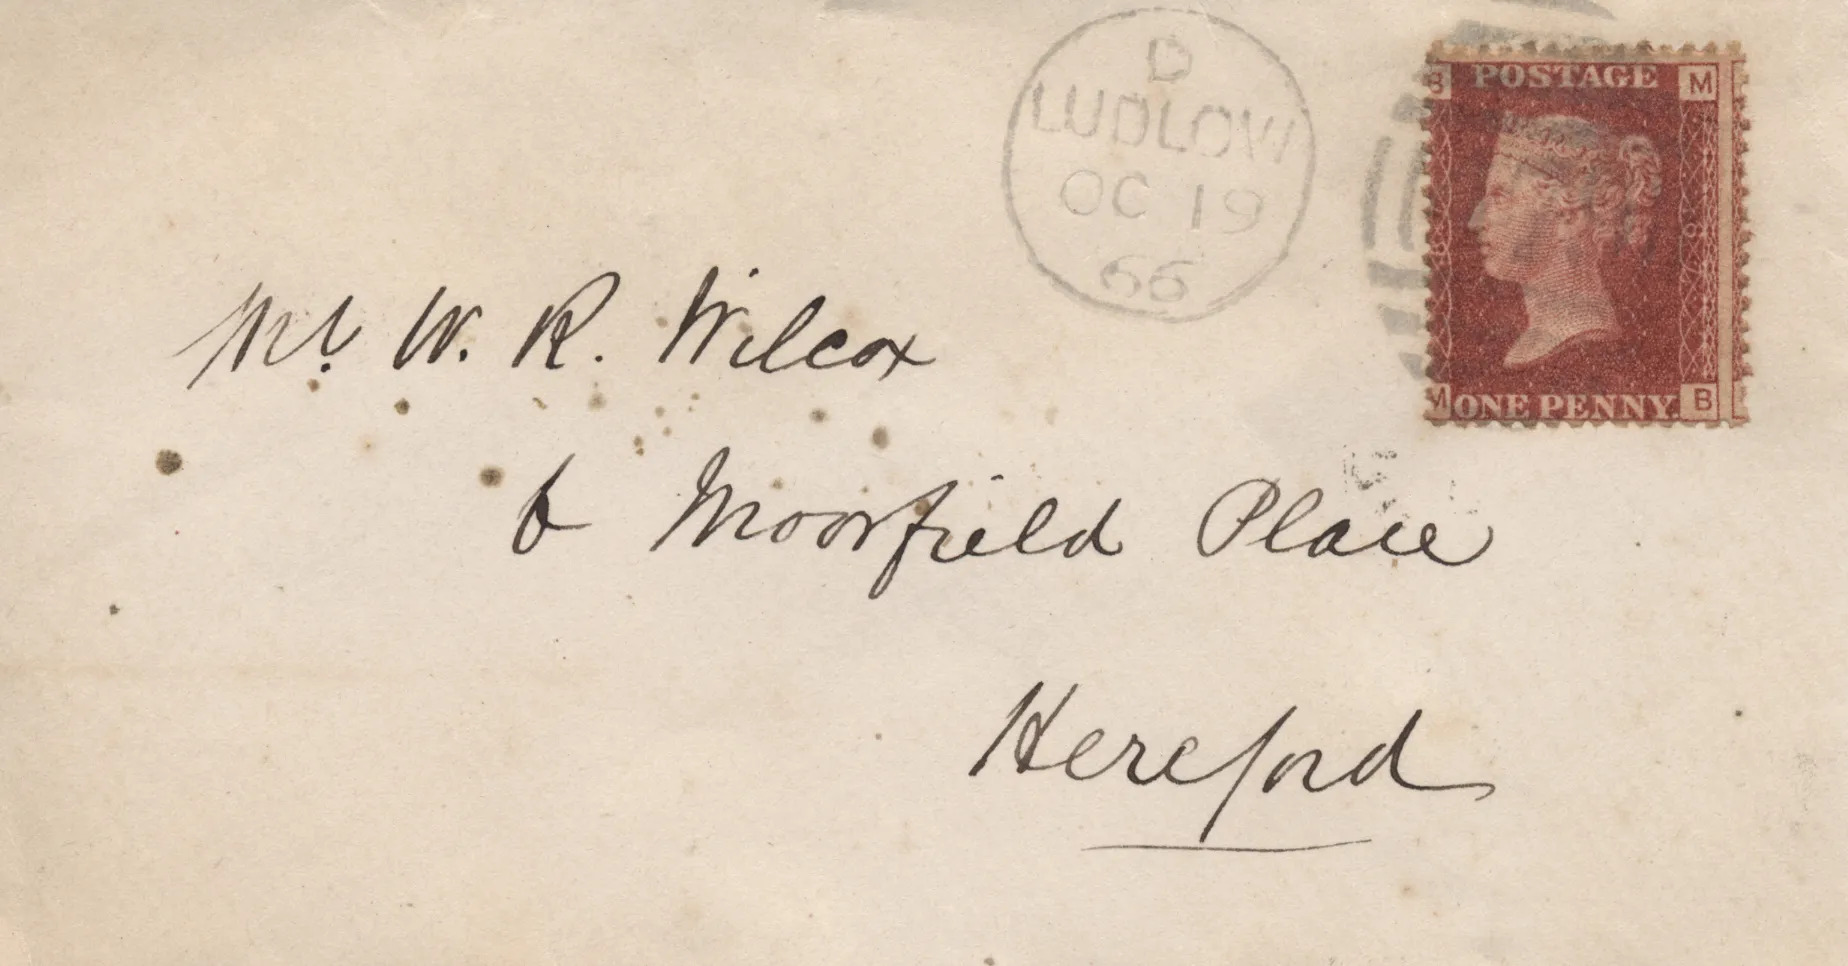 D
LUDLOW
OC 19
66
B POSTAGE M
M ONE PENNY B
Mr. W. R. Wilcox
6 Moorfield Place
Hereford